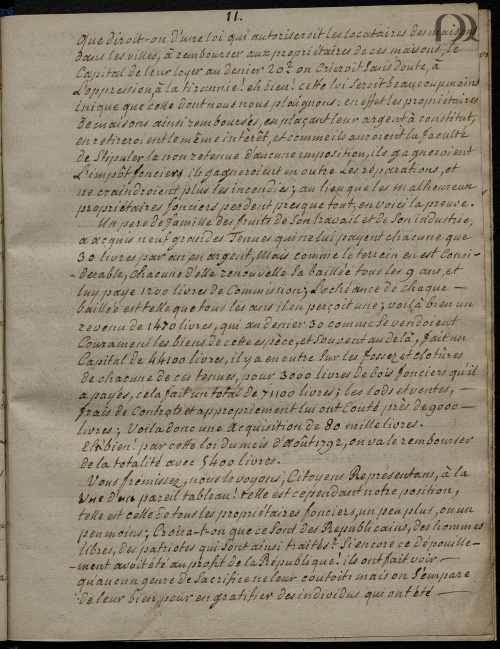 11.
Que diroit-on d'une loi qui autoriseroit les locataires des maisons
dans les villes, à rembourser aux propriétaires de ces maisons, le
Capital de leur loyer au denier 20.e on crieroit sans doute, à
L'oppression, à la tirannie! eh bien! cette loi seroit beaucoup moins
inique que celle dont nous nous plaignons: en effet les propriétaires
de maisons ainsi rembourses, en plaçant leur argent à constitut,
en retireroient le même interêt, et comme ils auroient la faculté
de Stipuler la non retenue d'aucune imposition, ils gagneroient
L'impôt foncier; ils gagneroient en outre Les réparations, et
ne craindroient plus les incendies; au lieu que les malheureux
propriétaires fonciers perdent presque tout, en voici la preuve.
Un pere de famille des fruits de Son travail et de Son industrie,
a acquis neuf grandes Tenues qui ne lui payent chacune que
30 livres par an en argent, Mais comme le terrein en est Consi-
derable, chacune d'elle renouvelle Sa baillée tous les 9 ans, et
luy paye 1200 livres de Commission; L'echéance de chaque
baillée est telle que tous les ans il en perçoit une; voilà bien un
revenu de 1470 livres, qui au denier 30 comme Se vendoient
Couramment les biens de cette espèce, et Souvent au delà, fait un
Capital de 44100 livres, il y a en outre Sur les fossez et clotures
de chacune de ces tenues, pour 3000 livres de bois fonciers qu'il
a payés, cela fait un total de 71100 livres; les lods et ventes,
frais de Contrats et appropriement lui ont Couté près de 9000
livres; Voila donc une acquisition de 80 mille livres.
Eh bien! par cette loi du mois d'Août 1792, on va le rembourser
de la totalité avec 5400 livres.
Vous frémissez, nous le voyons, Citoyens Représentans, à la
vue d'un pareil tableau! telle est cependant notre position,
telle est celle de tous les propriétaires fonciers, un peu plus, ou un
peu moins; Croira-t-on que ce Sont des Republicains, des hommes
libres, des patriotes qui Sont ainsi traités? Si encore ce dépouille-
ment avoit été au profit de la République! ils ont fait voir
qu'aucun genre de Sacrifice ne leur coutoit; mais on S'empare
de leur bien, pour en gratifier des individus qui ont été